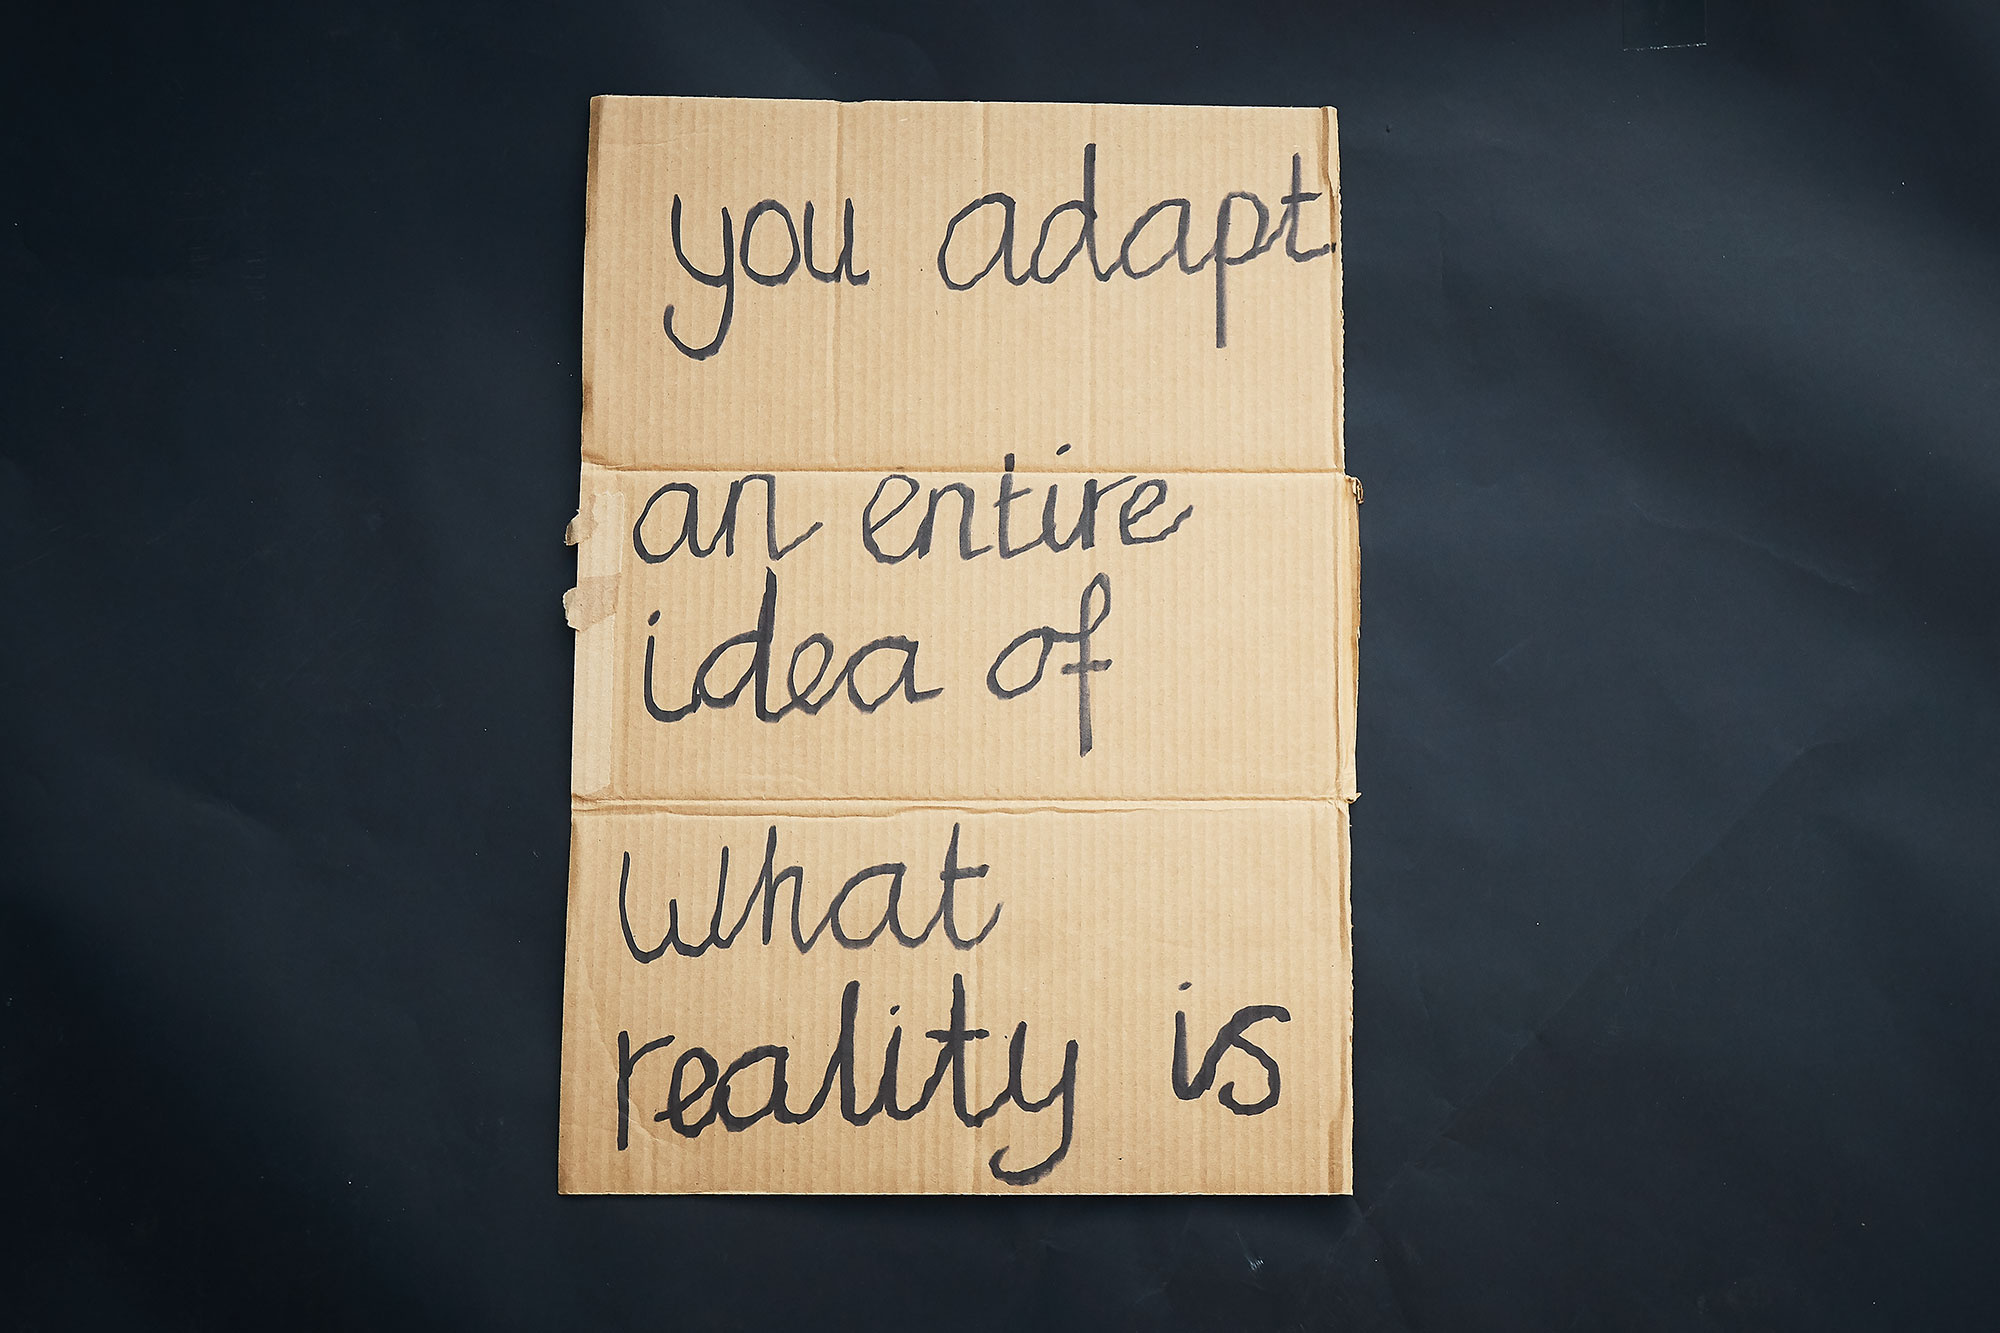 you adapt
an entire
idea of
what
reality is